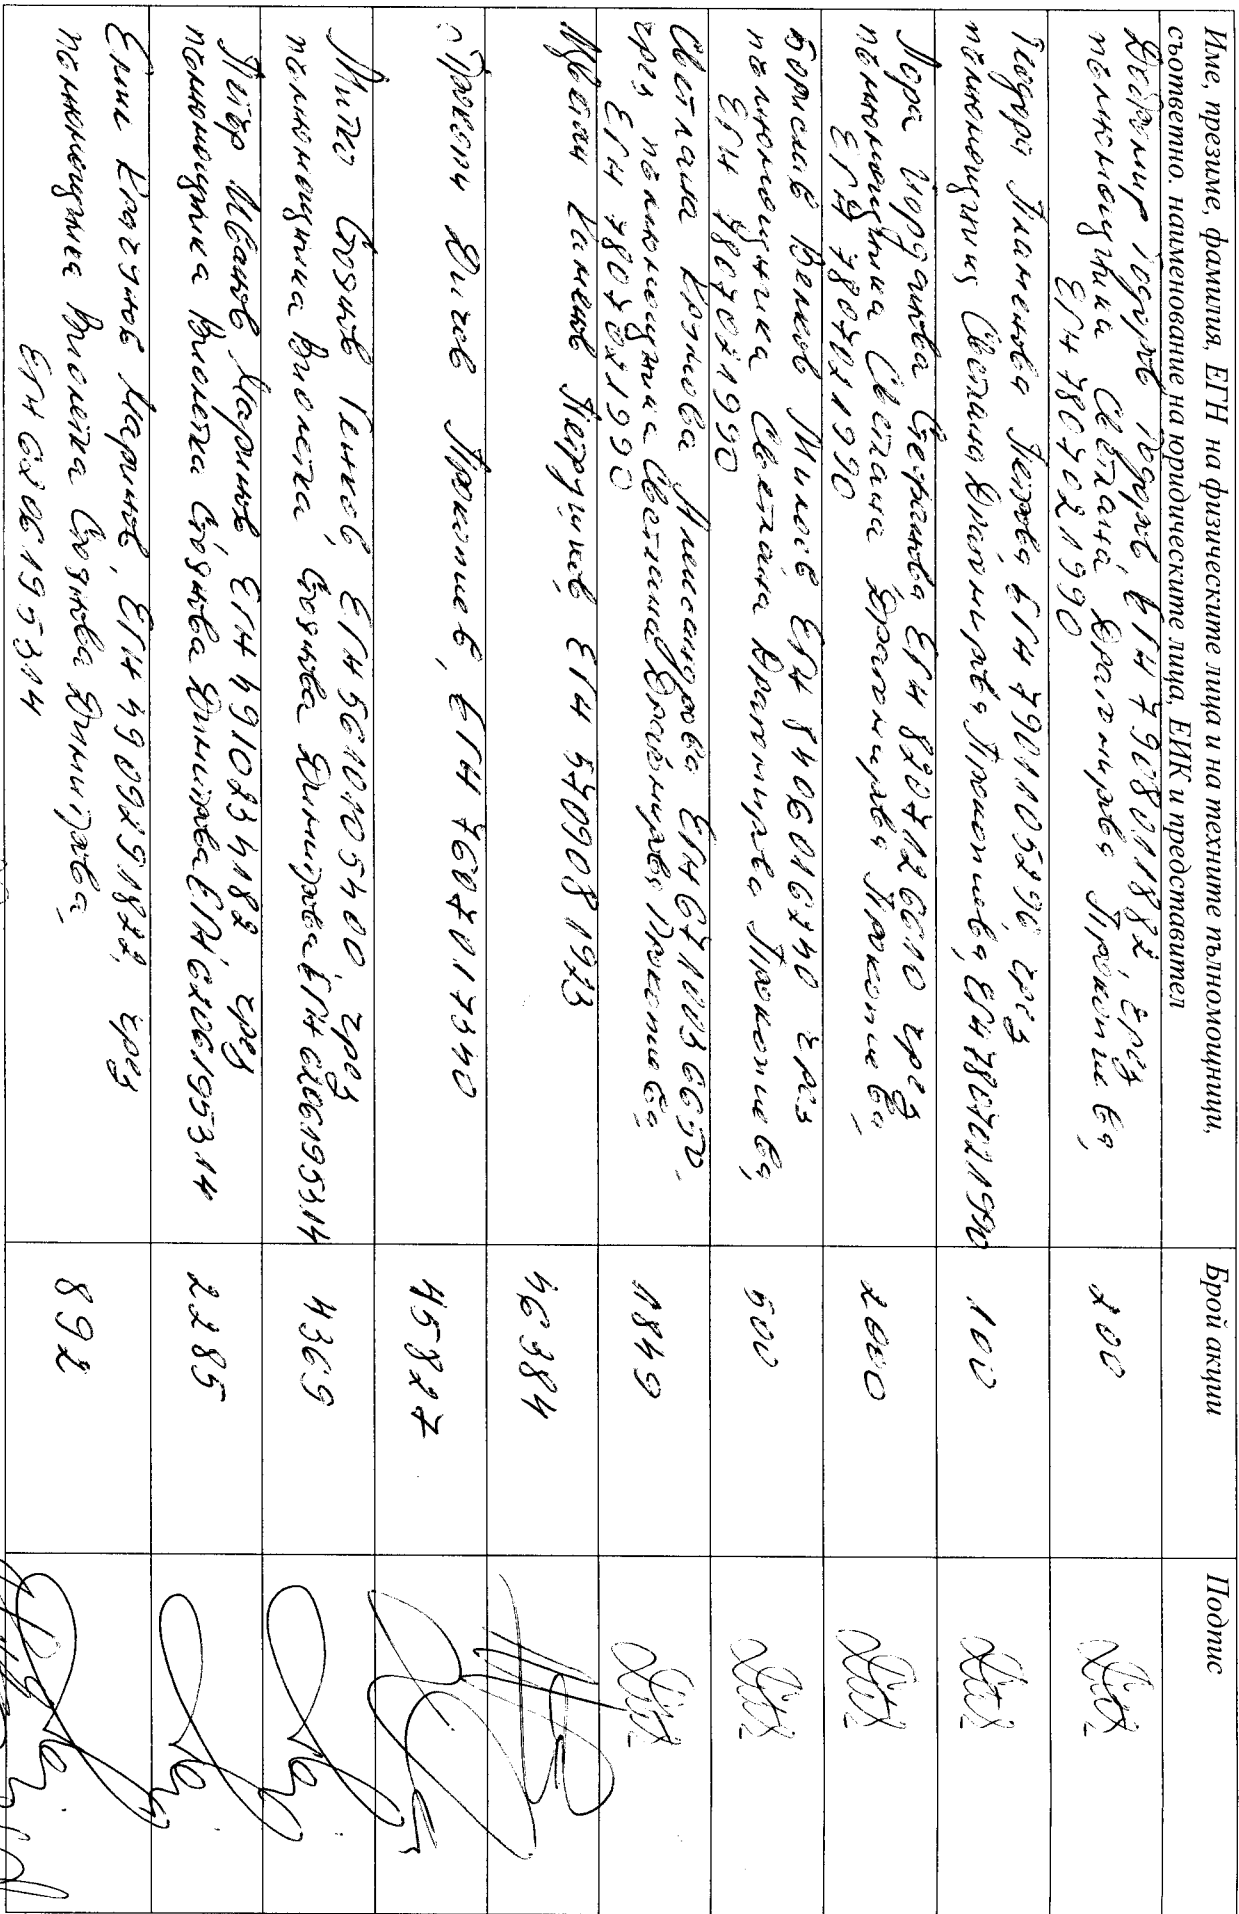 Име, презиме, фамилия, ЕГН на физическите лица и на техните пълномощници,
съответно, наименование на юридическите лица, ЕИК и представител
Брой акции
Подпис
Тодоров Тодоров, ЕГН 7908011882, чрез
пълномощника Светлана Драгомирова Прокопиева,
ЕГН 7807021990
200
Теодора Пламенова Петрова ЕГН 7901105296, чрез
пълномощник Светлана Драгомирова Прокопиева, ЕГН 7807021990
100
Лора Йорданова Стефанова ЕГН 8207126610 чрез
пълномощника Светлана Драгомирова Прокопиева,
ЕГН 7807021990
2000
Борислав Велков Милов ЕГН 8406016740 чрез
пълномощника Светлана Драгомирова Прокопиева,
ЕГН 7807021990
500
Светлана Александрова ЕГН 6710036650,
чрез пълномощника Светлана Драгомирова Прокопиева
ЕГН 7807021990
1849
Цветан Каменов Петрушков ЕГН 5709081923
46384
Прокопи Дичев Прокопиев, ЕГН 7607017340
45827
Митко Стоянов Генков, ЕГН 5610105400, чрез
пълномощника Виолетка Стоянова Димитрова, ЕГН 6206195314
4369
Петър Иванов Маринов, ЕГН 4910234182 чрез
пълномощника Виолетка Стоянова Димитрова ЕГН 6206195314
2285
Емил Кръчунов Маринов, ЕГН 4909291822, чрез
пълномощника Виолетка Стоянова Димитрова,
ЕГН 6206195314
892